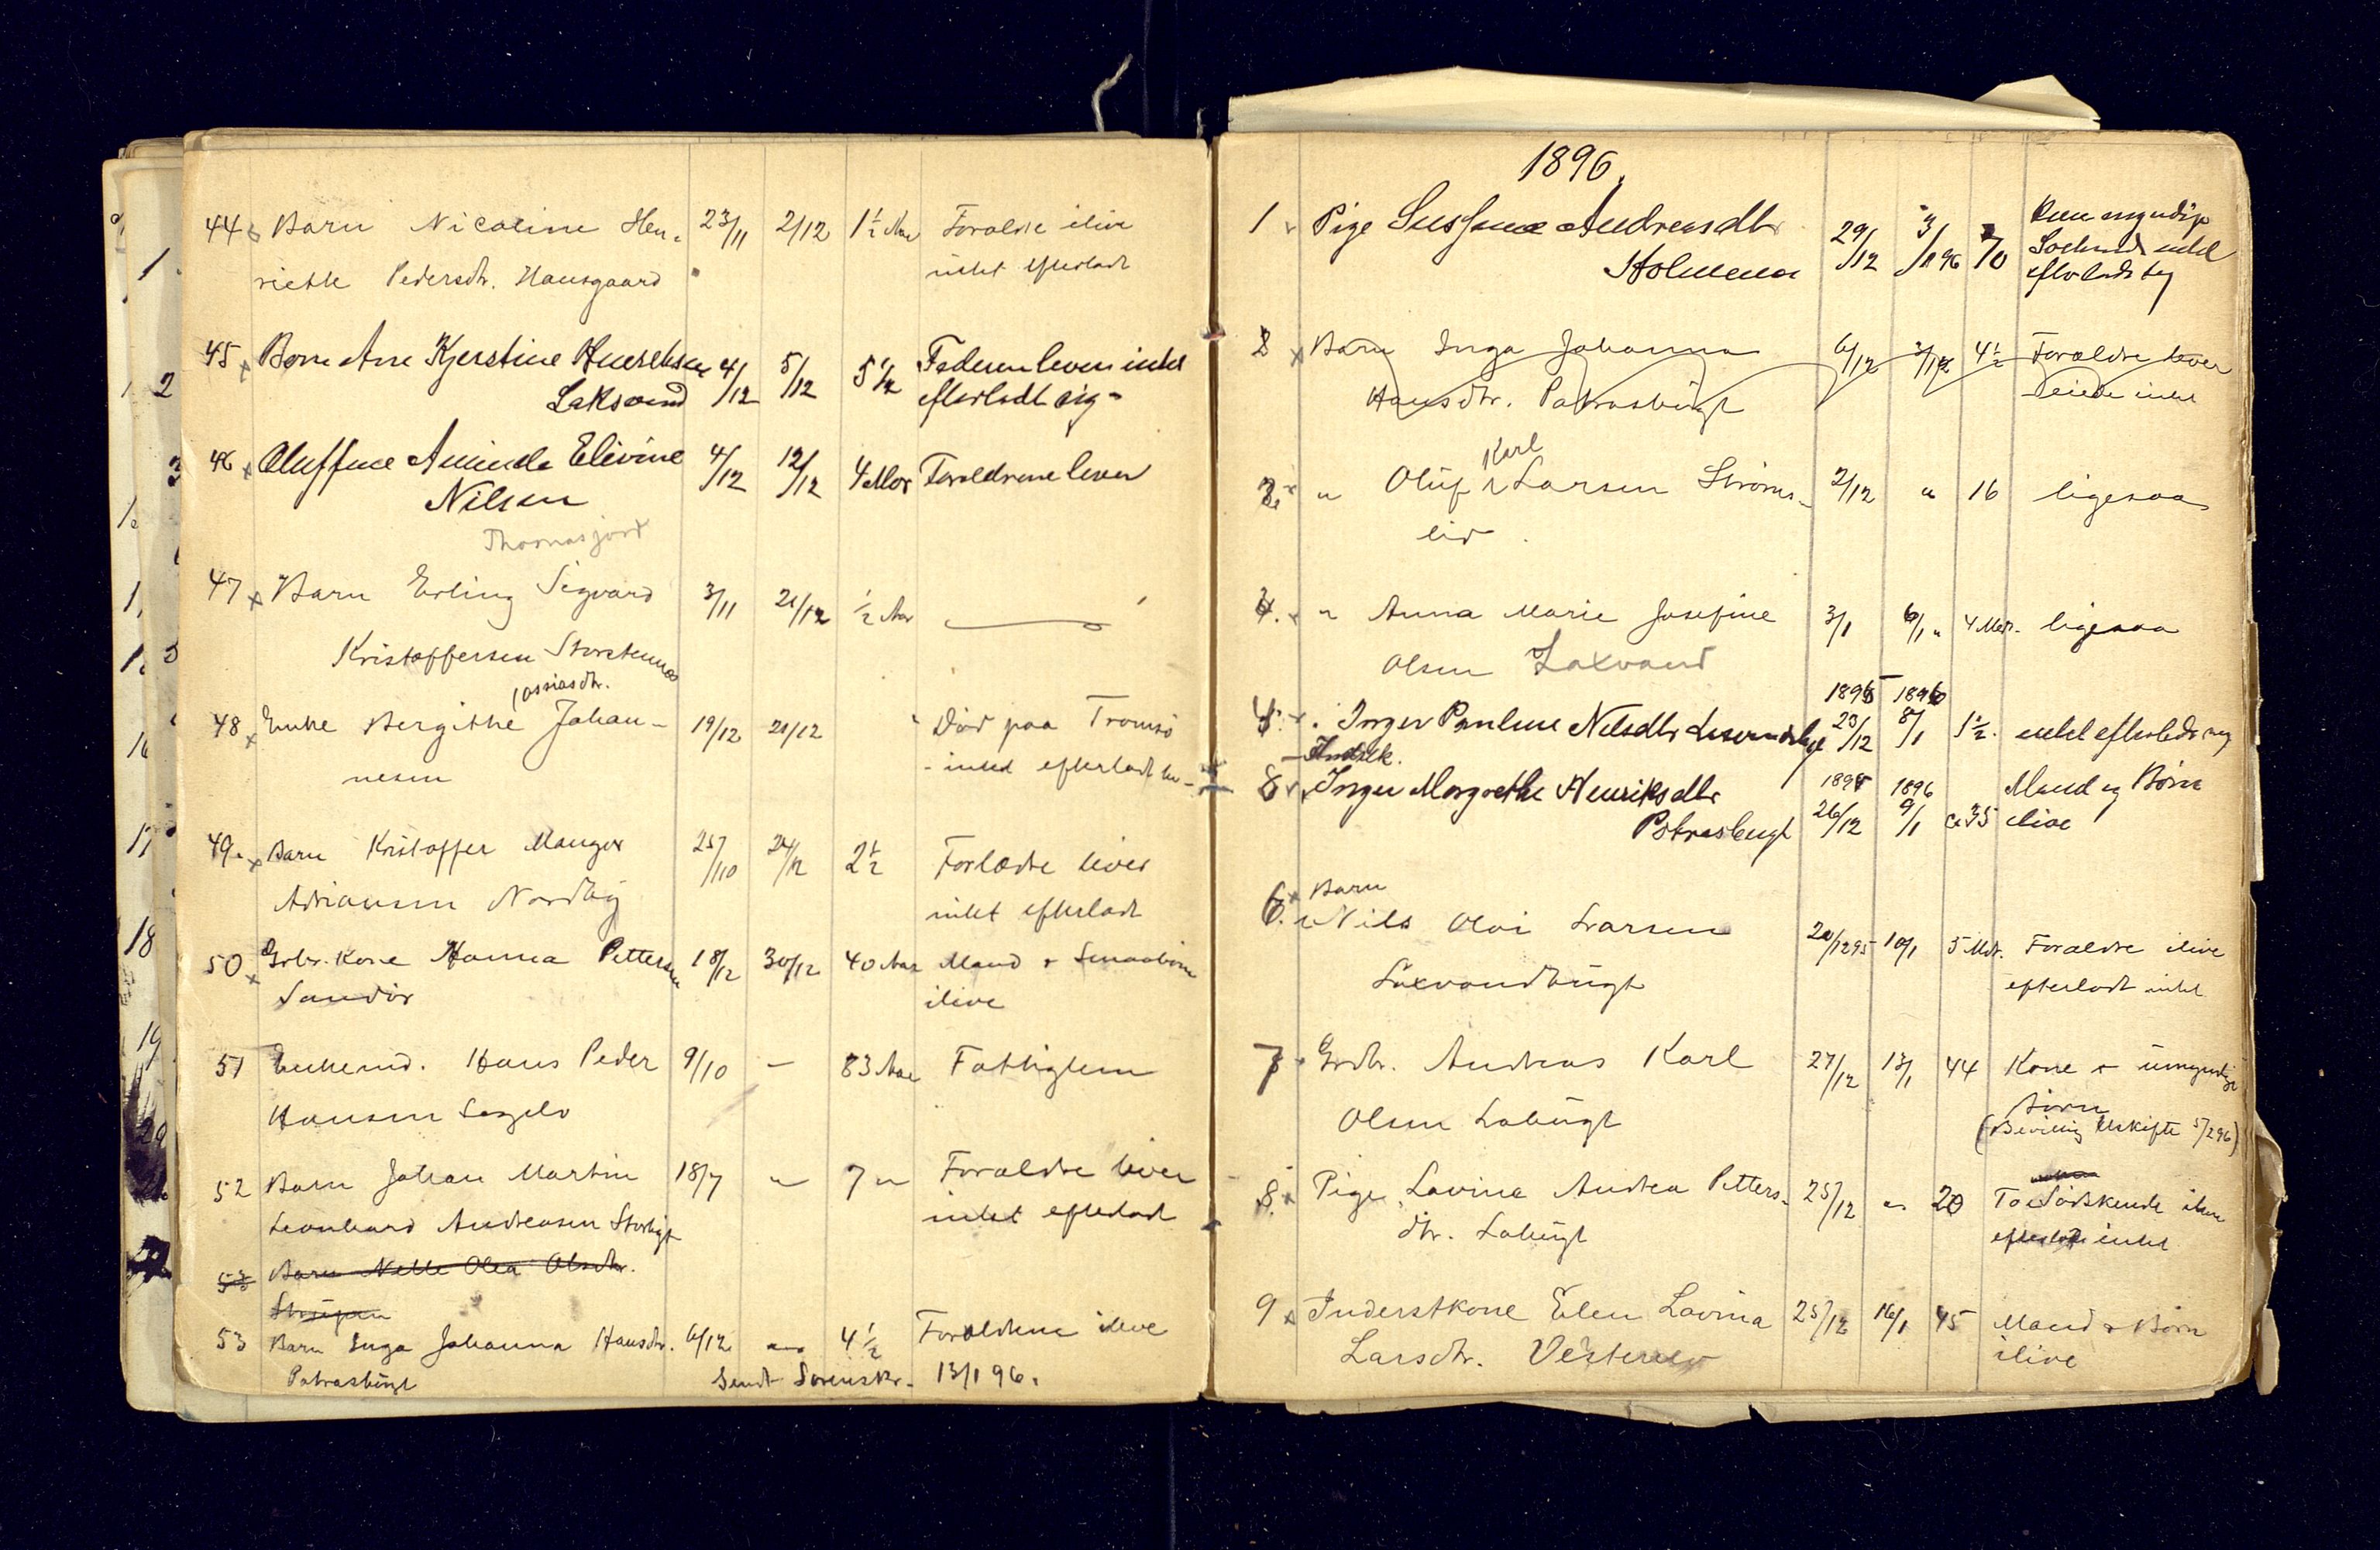 44 Barn Nicoline Hen- 23/11 2/12 1½ Aar Forældre ilive
riette Pedersdtr. Hansgaard intet efterladt
45 x Barn Ane Kjerstine Henriksen 4/12 5/12 5½ Faderen lever intet
Laksvand efterladt sig
46 x Oluffine Aminda Elivine 4/12 12/12 4 Mdr Forældrene lever
Nilsen
Thomasjord
47 x Barn Erling Sigvard 3/11 21/12 ½ Aar
Kristoffersen Storstennes
48 x Enke Bergithe Johan- 19/12 21/12 Død paa Tromsö
Jossiasdtr.
nesen - intet efterladt
49. x Barn Kristoffer Manger 25/10 24/12 2½ Forældre lever
Adriansen Nordby intet efterladt
50 x Grbr. Kone Hanna Pettersen 18/12 30/12 40 Aar Mand & Smaabörn
Sandör ilive
51 Enkemd. Hans Peder 9/10 — 83 Aar Fattiglem
Hansen Sagelv
52 Barn Johan Martin 18/7 " 7 " Forældre lever
Leonhard Andreasen Storbugt intet efterladt
53 Barn Nelle Olea Olsdtr.
53 Barn Inga Johanna Hansdtr. 6/12 " 4½ Forældrene ilive
Patrasbugt Sendt Sorenskr. 13/1 96.
1896.
1 Pige Susine Andreasdtr 29/12 3/1 96 70 Kun myndige
Holmenes Söskend intet
efterladt sig
2 x Barn Inga Johanna 6/12 4½ Forældre lever
Hansdtr. Patrasbugt Eiede intet
Karl
2. x " Oluf Larsen Ströms- 2/12 " 16 ligesaa
lid
" Anna Marie Josefine 3/1 6/1 " 4 Mdr. ligesaa
Olsen Laxvand
1895 1896
Inger Pauline Nilsdtr 23/12 8/1 1½. intet efterladt sig
Indstk.
Inger Margrethe Henriksdtr 1895 1896 Mand og Börn
Patrasbugt 26/12 9/1 ca 35 ilive
6. x Barn
Nils Olai Larsen 20/12 95 10/1 5 Mdr. Forældre ilive
Laxvandbugt efterladt intet
7 Grdbr. Andreas Karl 27/12 13/1 44 Kone & umyndige
Olsen Labugt Börn
(Bevilling Uskifte 5/2 96)
8. x Pige Lovina Andrea Petters- 25/12 " 20 To Södskende ilive
dtr. Labugt efterlod intet
9 x Inderstkone Elen Lavina 25/12 16/1 45 Mand & Börn
Larsdtr. Vesterelv ilive